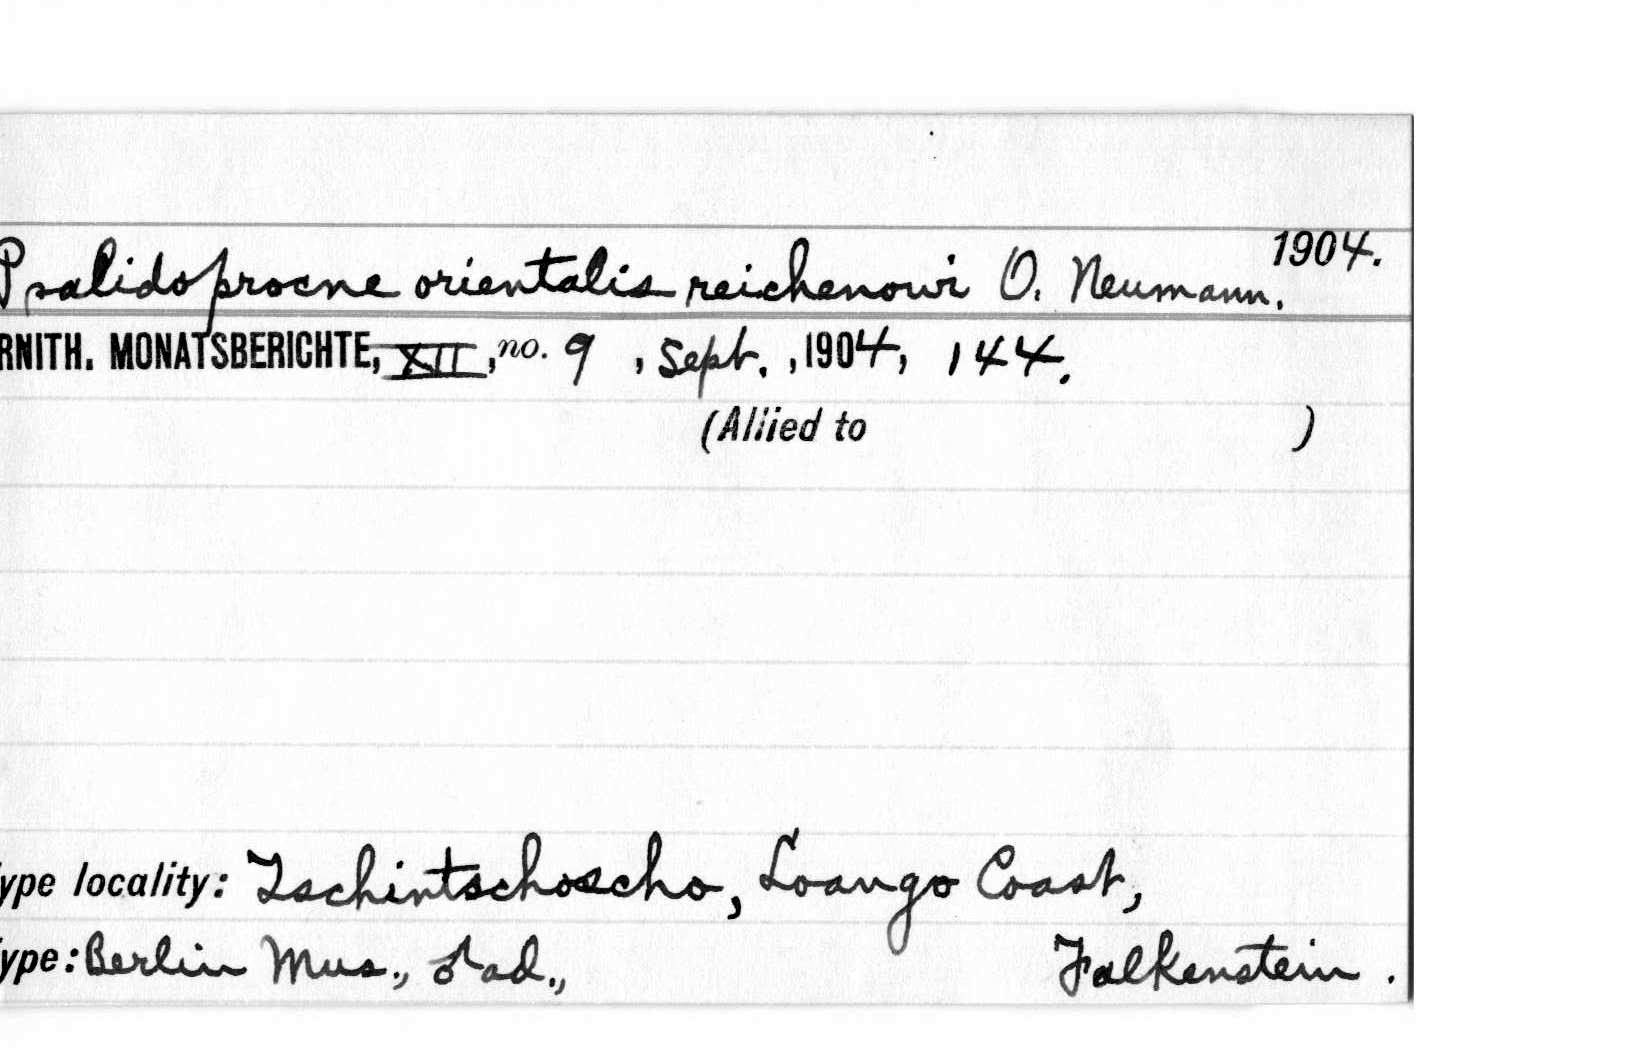 1904.
Psalidoprocne orientalis reichenowi O. Neumann.
RNITH. MONATSBERICHTE, XII, no. 9, Sept., 1904, 144.
(Allied to )
ype locality: Tschintschoscho, Loango Coast,
ype: Berlin Mus., ♂ ad., Falkenstein.